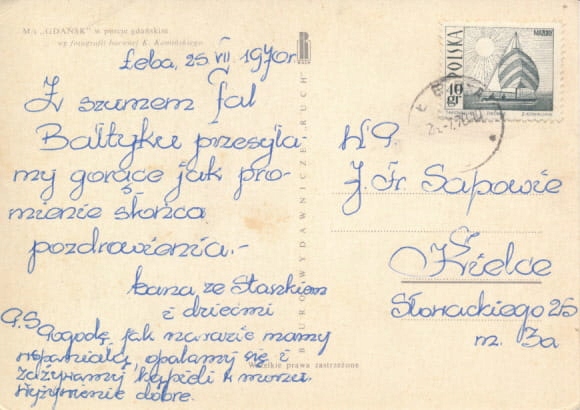 M/s „GDAŃSK" w porcie gdańskim
wg fotografii barwnej K. Kamińskiego
Łeba, 25 VII 1970r
Z szumem fal
Bałtyku przesyła
my gorące jak pro-
mienie słońca
pozdrowienia.-
ze Staszkiem
i dziećmi
P.S. Pogodę jak na razie mamy
wspaniałą, opalamy się i
zażywamy kąpieli w morzu.
Wyżywienie dobre.
BIURO WYDAWNICZE „RUCH"
Wszelkie prawa zastrzeżone
POLSKA
40 gr
W.P.
J. Fr Sapowie
Kielce
Słowackiego 25
m. 3a